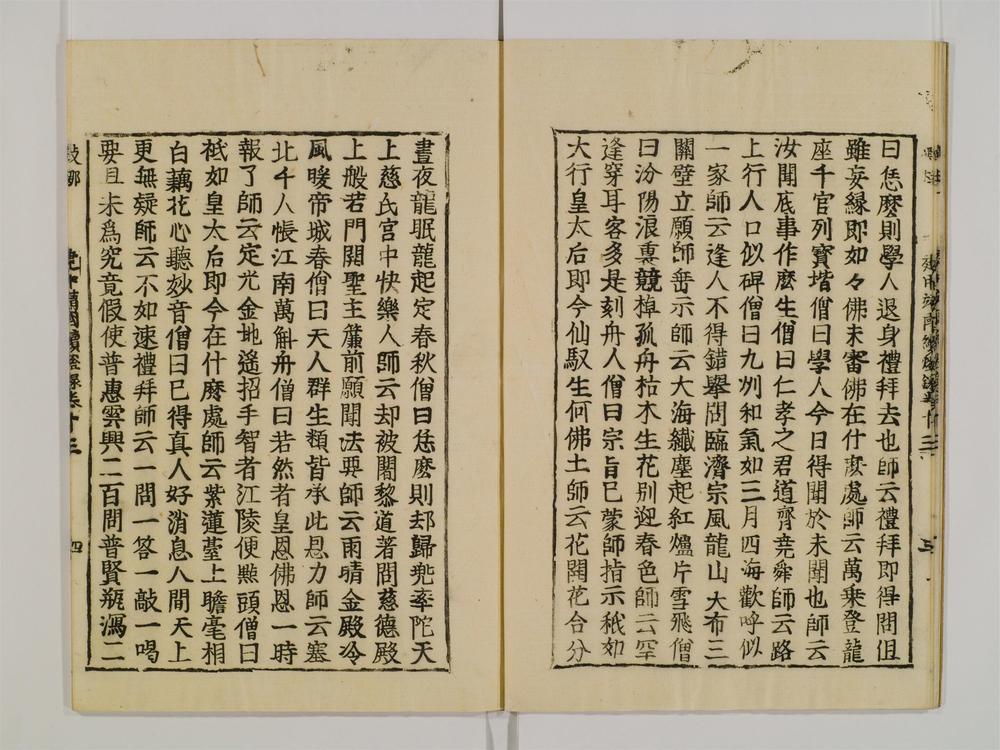 曰恁麽則學人退身禮拜去也師云禮拜即得問俎
雖妄緣即如々佛未審佛在什麽處師云萬乗登龍
座千官列寶堦僧曰學人今日得聞於未聞也師云
汝聞底事作麽生僧曰仁孝之君道齊堯舜師云路
上行人口似碑僧曰九州和氣如三月四海歡呼似
一家師云逢人不得錯擧問臨濟宗風龍山大布三
關壁立願師垂示師云大海纖塵起紅爐片雪飛僧
曰汾陽浪裏競棹孤舟枯木生花別迎春色師云罕
逢穿耳客多是刻舟人僧曰宗旨已蒙師指示秖如
大行皇太后即今仙馭生何佛土師云花開花合分
晝夜龍眠龍起定春秋僧曰恁麽則却歸兠率陀天
上慈氏宮中快樂人師云却被闍黎道著問慈德殿
上般若門開聖主簾前願聞法要師云雨晴金殿冷
風暖帝城春僧曰天人群生類皆承此恩力師云塞
北千人帳江南萬斛舟僧曰若然者皇恩佛恩一時
報了師云定光金地遙招手智者江陵便㸃頭僧曰
祗如皇太后即今在什麽處師云紫蓮臺上瞻毫相
白藕花心聽妙音僧曰已得真人好消息人間天上
更無疑師云不如速禮拜師云一問一答一敲一喝
要且未爲究竟假使普惠雲興二百問普賢瓶瀉二
四